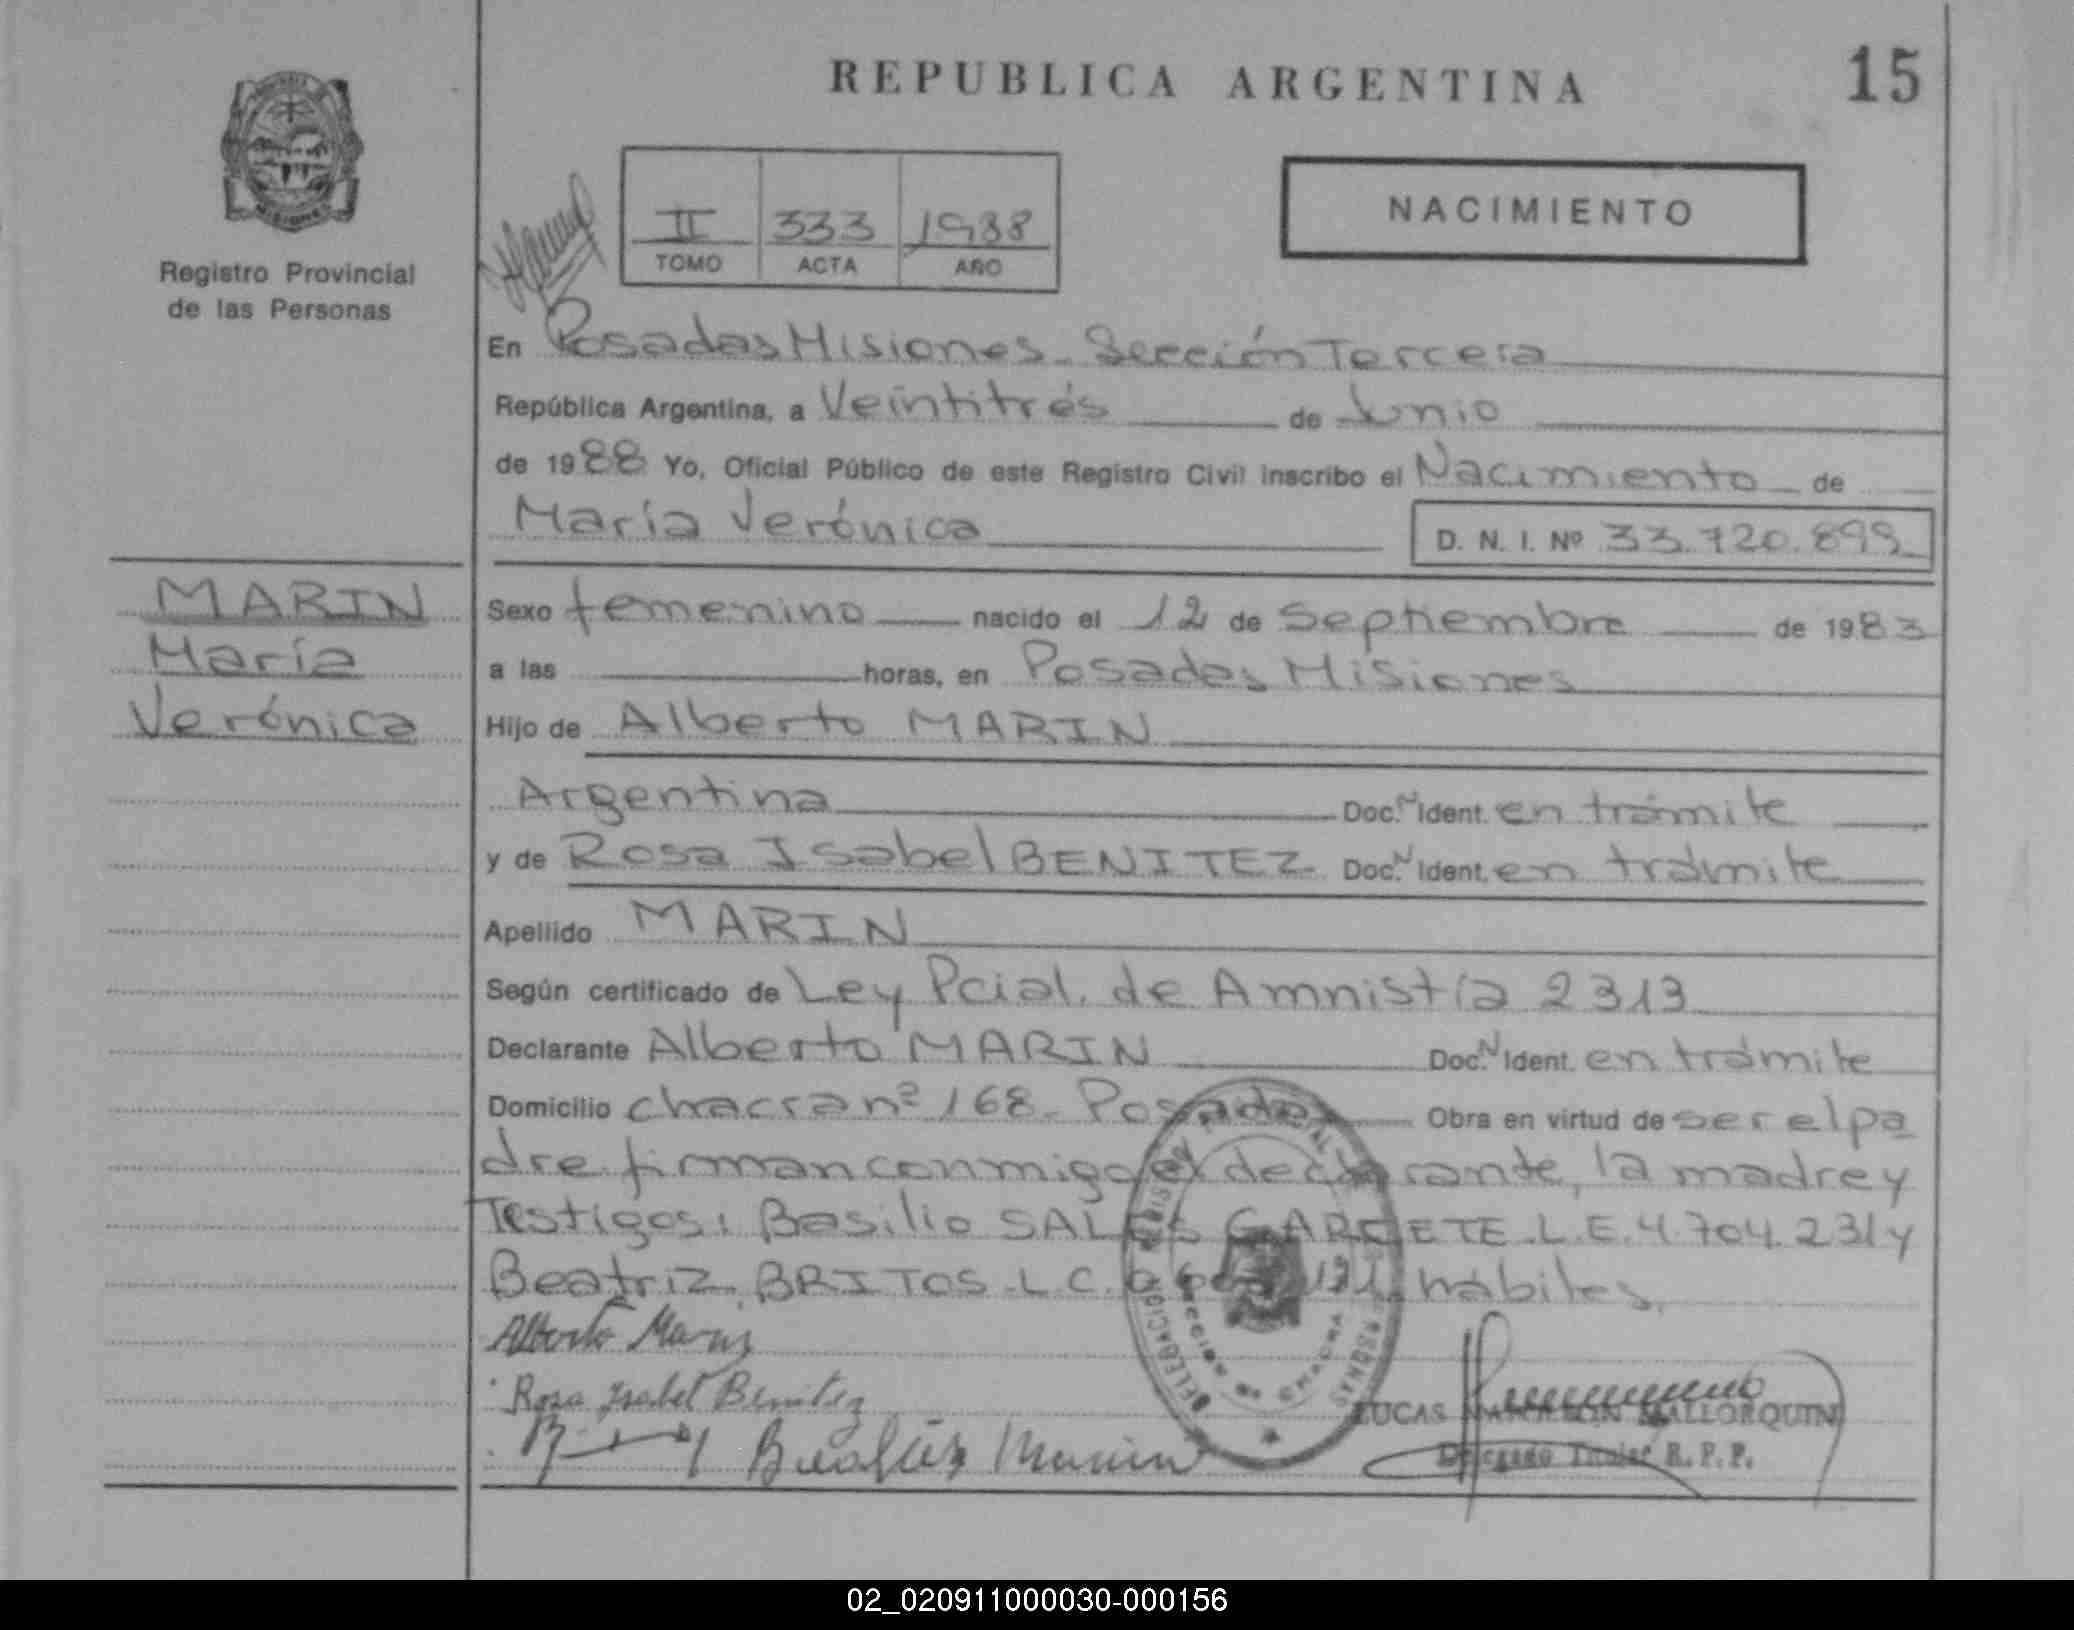 REPUBLICA ARGENTINA
15
Registro Provincial
de las Personas
II 333 1988
TOMO ACTA AÑO
NACIMIENTO
En Posadas Misiones - Sección Tercera
República Argentina, a Veintitrés de Junio
de 1988 Yo, Oficial Público de este Registro Civil inscribo el Nacimiento de
María Verónica D. N. I. Nº 33.720.899
MARIN
María
Verónica
Sexo femenino nacido el 12 de Septiembre de 1983
a las horas, en Posadas Misiones
Hijo de Alberto MARIN
Argentina Doc. N Ident. en trámite
y de Rosa Isabel BENITEZ Doc. N Ident. en trámite
Apellido MARIN
Según certificado de Ley Pcial. de Amnistía 2313
Declarante Alberto MARIN Doc. N Ident. en trámite
Domicilio chacra nº 168 - Posadas Obra en virtud de ser el pa
dre firman conmigo el declarante, la madre y
Testigos: Basilio SALES GARCETE L.E. 4.704.231 y
Beatriz BRITOS - L.C. hábiles
Alberto Marin
Rosa Isabel Benitez
Beatriz
LUCAS NAPOLEON MALLORQUIN
Delegado Titular R. P. P.
02_020911000030-000156